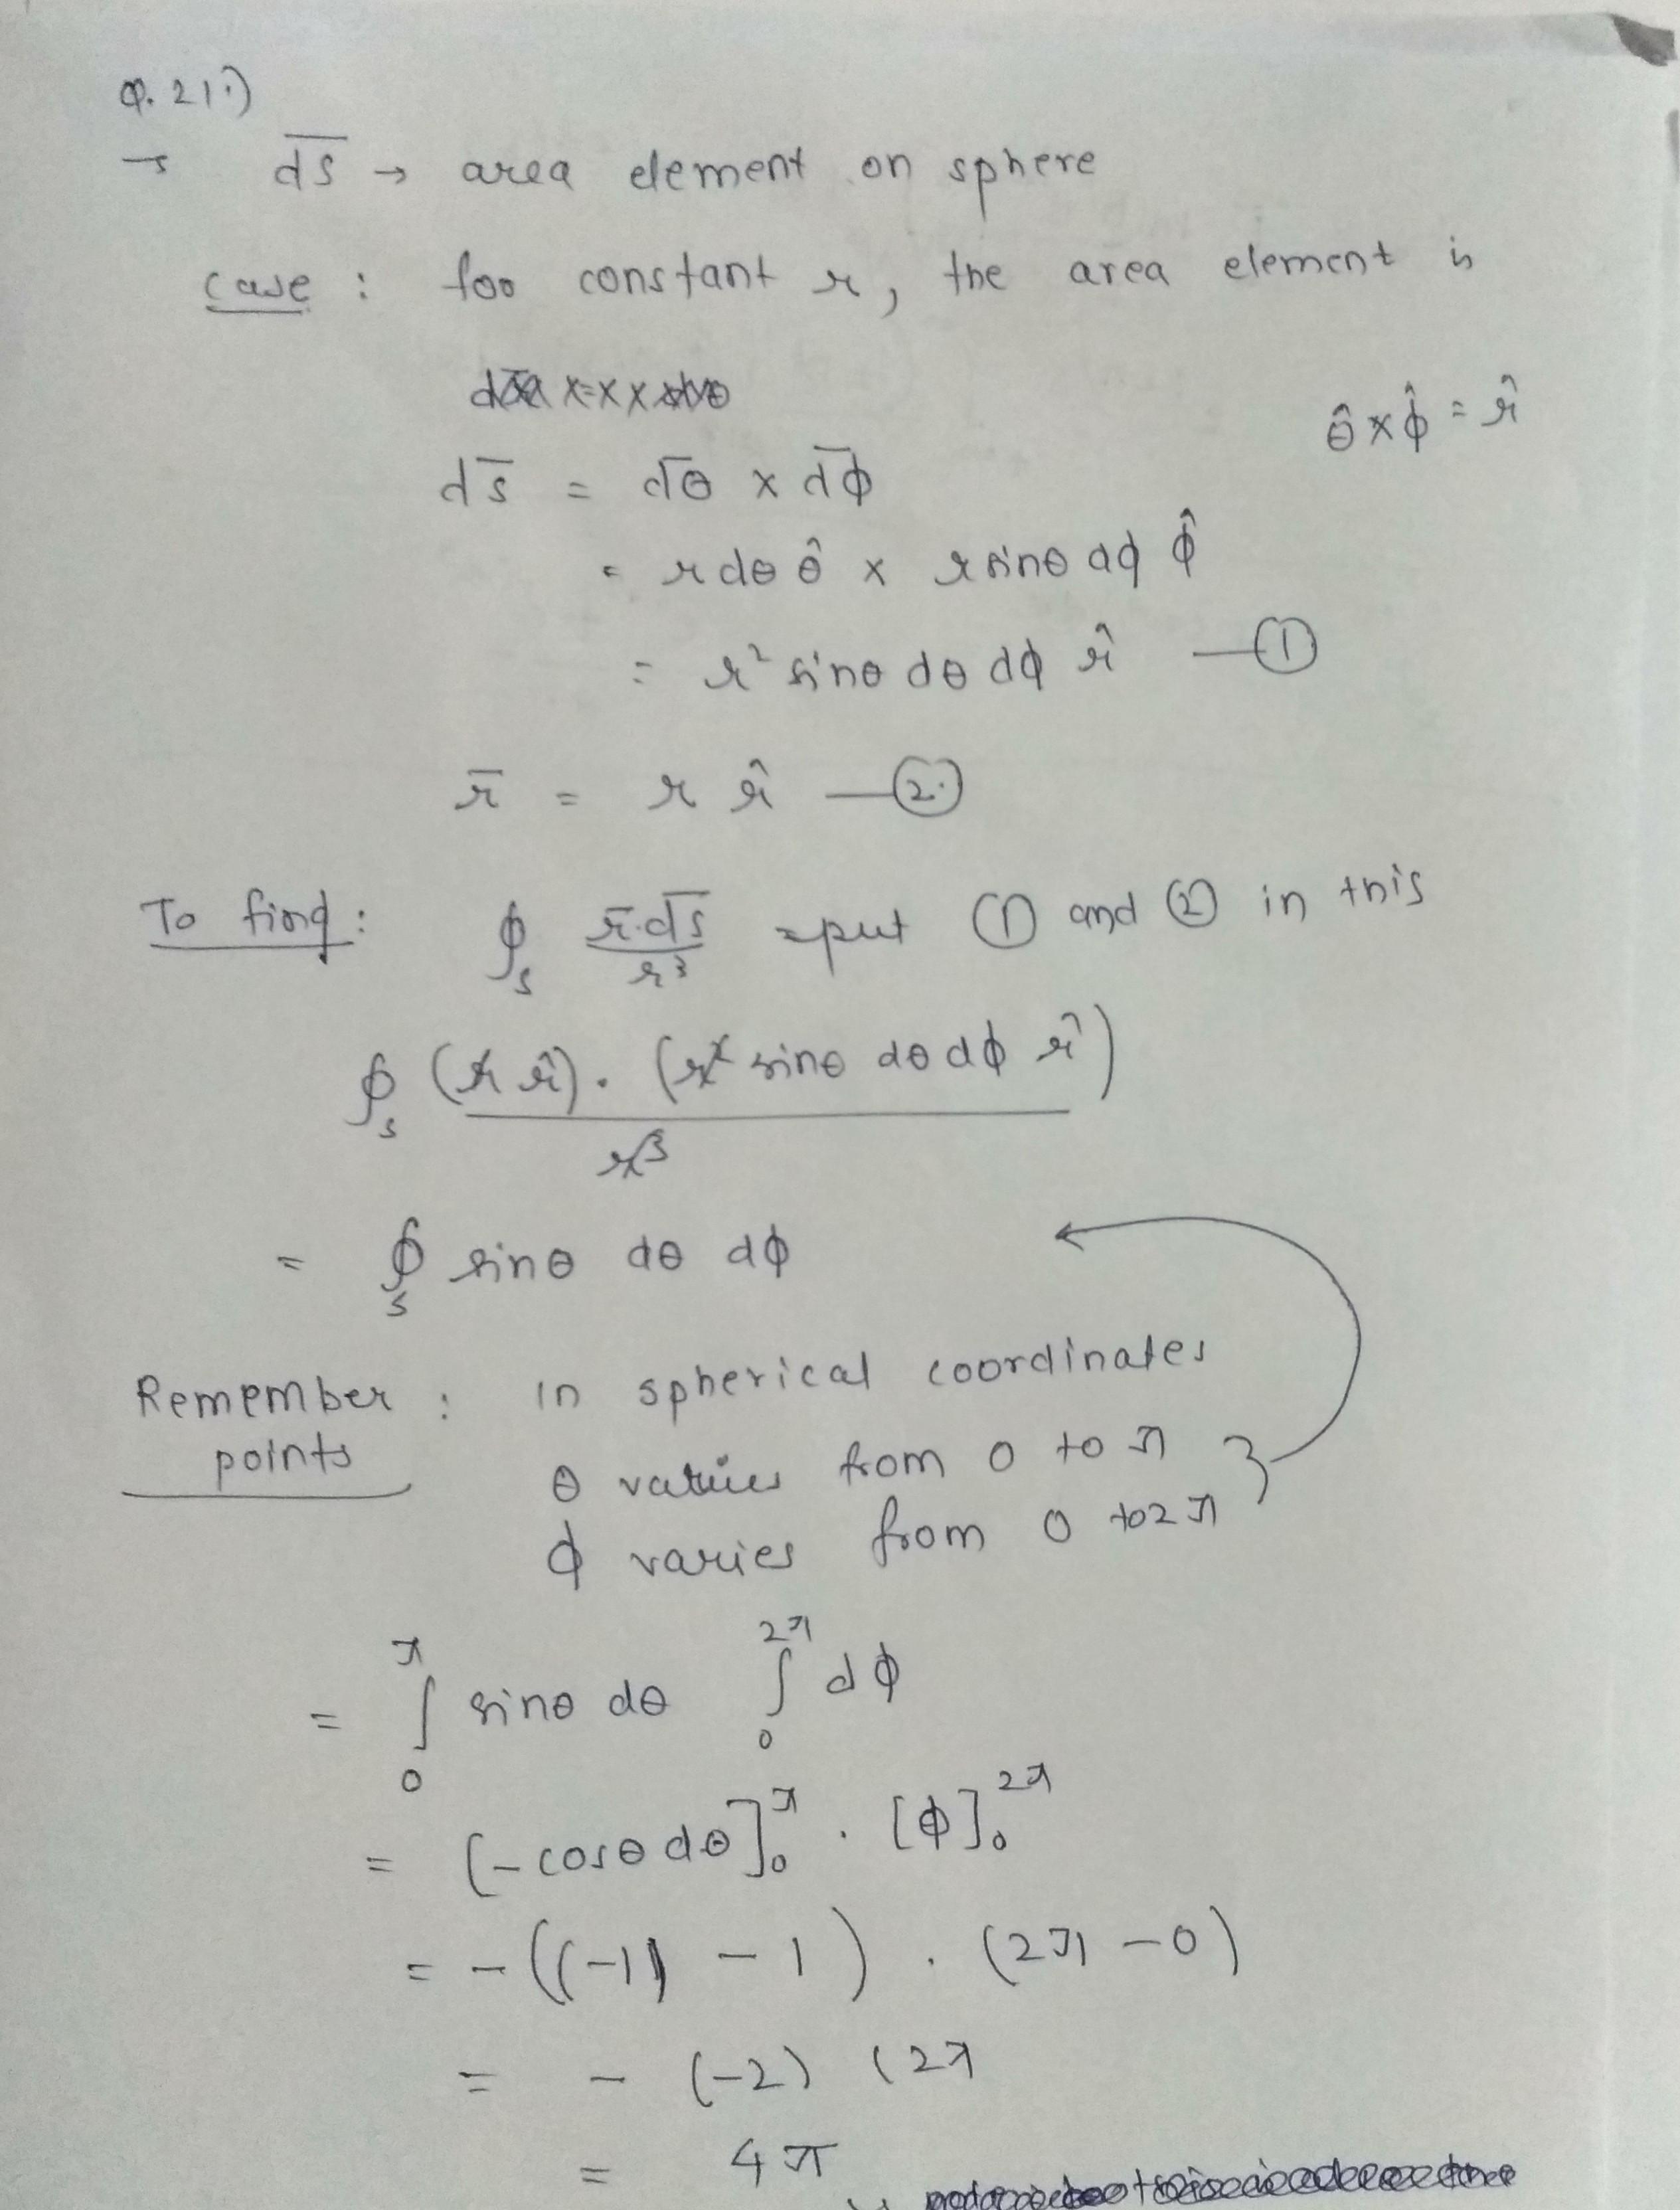 Q. 21.)
→ d͞s → area element on sphere
case : for constant r, the area element is
θ̂ × ϕ̂ = r̂
ds̄ = d̄θ × d̄ϕ
= r dθ θ̂ × r sinθ dϕ ϕ̂
= r² sinθ dθ dϕ r̂ —①
r̄ = r r̂ —②
To find : ∮s r̄.d͞s / r³ put ① and ② in this
∮s (r r̂) . (r² sinθ dθ dϕ r̂) / r³
= ∮s sinθ dθ dϕ
Remember points : in spherical coordinates
θ varies from 0 to π
ϕ varies from 0 to 2π
= ∫₀^π sinθ dθ ∫₀^2π dϕ
= [-cosθ dθ]₀^π . [ϕ]₀^2π
= -((-1) - 1) . (2π - 0)
= - (-2) (2π
= 4π